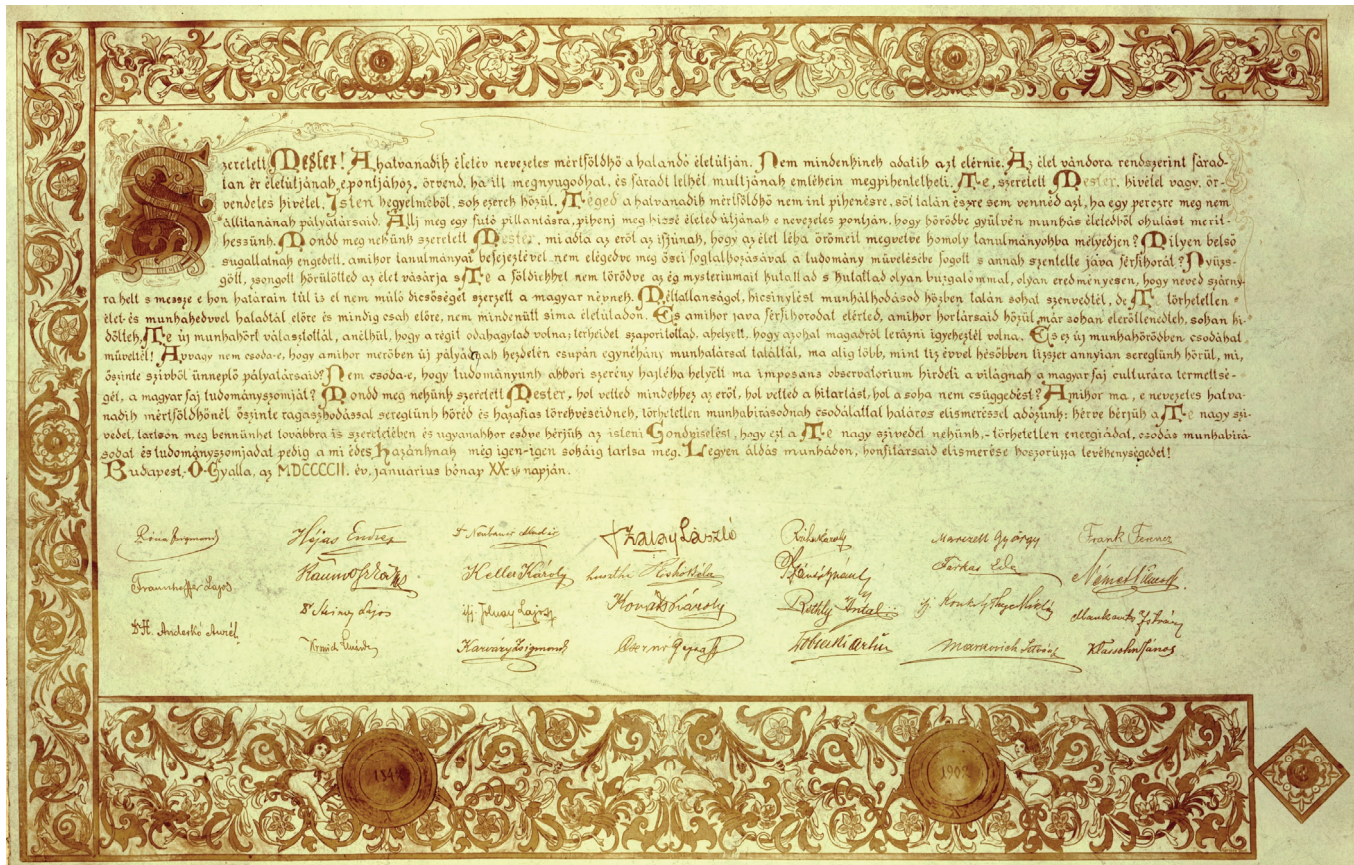 Szeretett Mester! A hatvanadik életév nevezetes mértföldkő a halandó életútján. Nem mindenkinek adatik azt elérnie. Az élet vándora rendszerint fárad-
tan ér életútjának e pontjához, örvend, ha itt megnyugodhat, és fáradt lelkét multjának emlékein megpihentetheti. Te, szeretett Mester, kivétel vagy, ör-
vendetes kivétel, Isten kegyelméből, sok ezerek közül. Téged a hatvanadik mértföldkő nem int pihenésre, sőt talán észre sem vennéd azt, ha egy perczre meg nem
állitanának pályatársaid. Állj meg egy futó pillantásra, pihenj meg kissé életed útjának e nevezetes pontján, hogy körödbe gyülvén munkás életedből okulást merit-
hessünk. Mondd meg nekünk szeretett Mester, mi adta az erőt az ifjúnak, hogy az élet léha örömeit megvetve komoly tanulmányokba mélyedjen? Milyen belső
sugallatnak engedett, amikor tanulmányai befejeztével nem elégedve meg ősei foglalkozásával a tudomány művelésébe fogott s annak szentelte java férfikorát? Nyüzs-
gött, zsongott körülötted az élet vásárja s Te a földiekkel nem törődve az ég mysteriumait kutattad s kutattad olyan buzgalommal, olyan eredményesen, hogy neved szárny-
ra kelt s messze e hon határain túl is el nem múló dicsőséget szerzett a magyar névnek. Méltatlanságot, kicsinylést munkálkodásod közben talán sokat szenvedtél, de Te törhetetlen
élet- és munkakedvvel haladtál előre és mindig csak előre, nem mindenütt sima életútadon. És amikor java férfikorodat elérted, amikor kortársaid közül már sokan elerőtlenedtek, sokan ki-
dőltek, Te új munkakört választottál, anélkül, hogy a régit odahagytad volna; terheidet szaporítottad, ahelyett, hogy azokat magadról lerázni igyekeztél volna. És ez új munkakörödben csodákat
műveltél! Avvagy nem csoda-e, hogy amikor merőben új pályádnak kezdetén csupán egynéhány munkatársat találtál, ma alig több, mint tiz évvel későbben tizszer annyian sereglünk körül, mi,
őszinte szivből ünneplő pályatársaid? Nem csoda-e, hogy tudományunk akkori szerény hajléka helyett ma imposans observatorium hirdeti a világnak a magyar faj culturára termettsé-
gét, a magyar faj tudományszomját? Mondd meg nekünk szeretett Mester, hol vetted mindehhez az erőt, hol vetted a kitartást, hol a soha nem csüggedést? Amikor ma, e nevezetes hatva-
nadik mértföldkőnél őszinte ragaszkodással sereglünk köréd és hazafias törekvéseidnek, törhetetlen munkabirásodnak csodálattal határos elismeréssel adózunk: kérve kérjük a Te nagy szi-
vedet, tartson meg bennünket továbbra is szeretetében és ugyanakkor esdve kérjük az isteni Gondviselést, hogy ezt a Te nagy szivedet nekünk, - törhetetlen energiádat, csodás munkabirá-
sodat és tudományszomjadat pedig a mi édes hazánknak még igen-igen sokáig tartsa meg. Legyen áldás munkádon, honfitársaid elismerése koszorúzza tevékenységedet!
Budapest-Ó-Gyalla, az MDCCCCII. év, januárius hónap XX-ik napján.
Róna Zsigmond Héjas Endre Szalay László Marczell György Frank Ferencz
Fraunhoffer Lajos Keller Károly Farkas Ede
Dr. Steiner Lajos Kováts Károly Réthly Antal ifj. Konkoly Thege Miklós
Dr. H. Anderkó Aurél Karváry Zsigmond Markovich Klassohn János
1842 1902